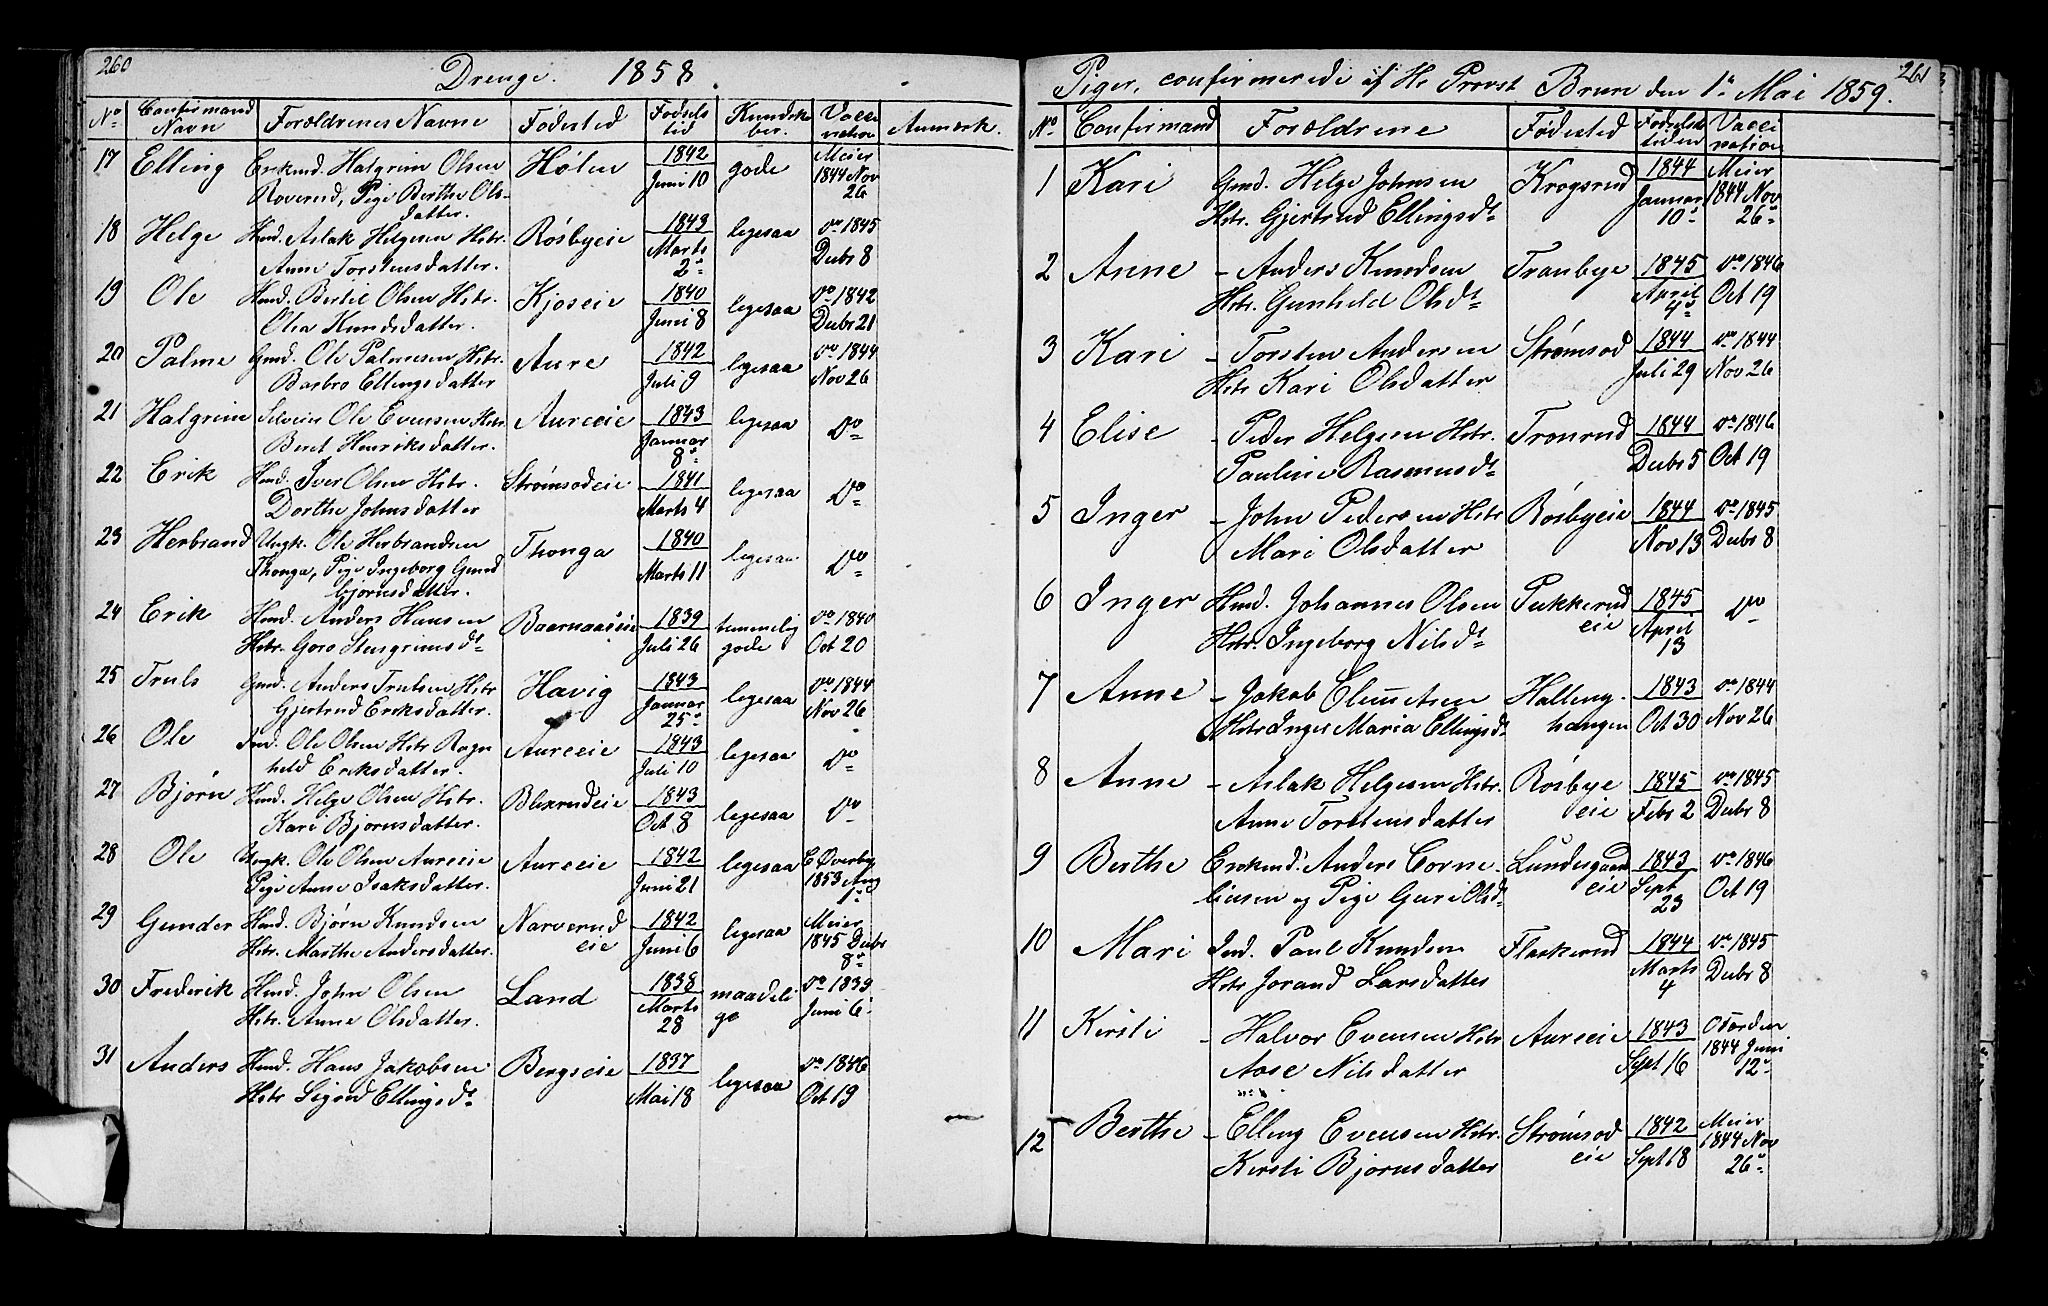 260
Drenge. 1858.
No Confirmand Navn Forældrenes Navne Fødested Fødsels tid Kundsk ber. Vacci nation Anmerk.
17 Elling Enkmd. Halgrim Olsen Hølen 1842 gode Meier
Roverud, Pige Berthe Ols- Juni 10 1844 Nov
datter. 26
18 Helge Hmd. Aslak Helgesen Hstr. Røsbyeie 1843 ligesaa Do 1845
Anne Torstensdatter. Marts 2 Decbr 8
19 Ole Hmd. Bertil Olsen Hstr. Kjoseie 1840 ligesaa Do 1842
Olea Knudsdatter. Juni 8 Decbr 21
20 Palme Gmd. Ole Palmesen Hstr. Aure 1842 ligesaa Do 1844
Barbro Ellingsdatter Juli 9 Nov 26
21 Halgrim Selveier Ole Evensen Hstr Aureeie 1843 ligesaa Do
Berit Henriksdatter. Januar 8
22 Erik Hmd. Iver Olsen Hstr. Strømsodeie 1841 ligesaa Do
Dorthe Johnsdatter Marts 4
23 Herbrand Ungk. Ole Herbrandsen Thonga 1840 ligesaa Do
Thonga, Pige Ingeborg Gund Marts 11
bjørnsdatter.
24 Erik Hmd. Anders Hansen Baarnaaseie 1839 temmelig Do 1840
Hstr. Goro Stengrimsdt Juli 26 gode Oct 20
25 Truls Gmd. Anders Trulsen Hstr Havig 1843 ligesaa Do 1844
Gjertrud Eriksdatter. Januar 25 Nov 26
26 Ole Ind. Ole Olsen Hstr Ragn Aureeie 1843 ligesaa Do
hild Eriksdatter. Juli 10
27 Bjørn Hmd. Helge Olsen Hstr. Blexrudeie 1843 ligesaa Do
Kari Bjørnsdatter. Oct 8
28 Ole Ungk. Ole Olsen Aureeie Aureeie 1842 ligesaa C Øverby
Pige Anne Isaksdatter. Juni 21 1853 Aug 1
29 Gunder Hmd. Bjørn Knudsen Narverud 1842 ligesaa Meier
Hstr. Marthe Andersdatter. eie Juni 6 1845 Decbr 8
30 Frederik Hmd. John Olsen Land 1838 maadeli Do 1839
Hstr. Anne Olsdatter. Marts 28 ge Juni 6
31 Anders Hmd. Hans Jakobsen Bergseie 1837 ligesaa Do 1846
Hstr Sigrid Ellingsdt Mai 18 Oct 19
261
Piger, confirmerede af Hr Provst Bruun den 1 Mai 1859.
No Confirmand Forældrene Fødested Fødsels tiden Vacci nation
1 Kari Gmd. Helge Johnsen Krogsrud 1844 Meier
Hstr. Gjertrud Ellingsdt Januar 10 1844 Nov 26
2 Anne - Anders Knudsen Tranbye 1845 Do 1846
Hstr. Gunhild Olsdt April 4 Oct 19
3 Kari - Torsten Andersen Strømsod 1844 Do 1844
Hstr Kari Olsdatter Juli 29 Nov 26
4 Elise - Peder Helgesen Hstr. Tronrud 1844 Do 1846
Pauline Rasmusdt Decbr 5 Oct 19
5 Inger - John Pedersen Hstr Røsbyeie 1844 Do 1845
Mari Olsdatter Nov 13 Decbr 8
6 Inger Hmd. Johannes Olsen Pukkerud 1845 Do
Hstr. Ingeborg Nilsdt eie April 13
7 Anne - Jakob Clemetsen Halleng- 1843 Do 1844
Hstr Inger Maria Ellingsdt haugen Oct 30 Nov 26
8 Anne - Aslak Helgesen Hstr. Røsbye 1845 Do 1845
Anne Torstensdatter eie Febr 2 Decbr 8
9 Berthe Enkemd. Anders Corne Lundesgaard 1843 Do 1846
liusen og Pige Guri Olsdt eie Sept 23 Oct 19
10 Mari Ind. Paul Knudsen Flaskerud 1844 Do 1845
Hstr Jorand Larsdatter Marts 4 Decbr 8
11 Kirsti - Halvor Evensen Hstr Aureeie 1843
Aase Nilsdatter Sept 16 1844 Juni 12
12 Berthe - Elling Evensen Hstr. Strømsod 1842 Meier
Kirsti Bjørnsdatter eie Sept 18 1844 Nov 26